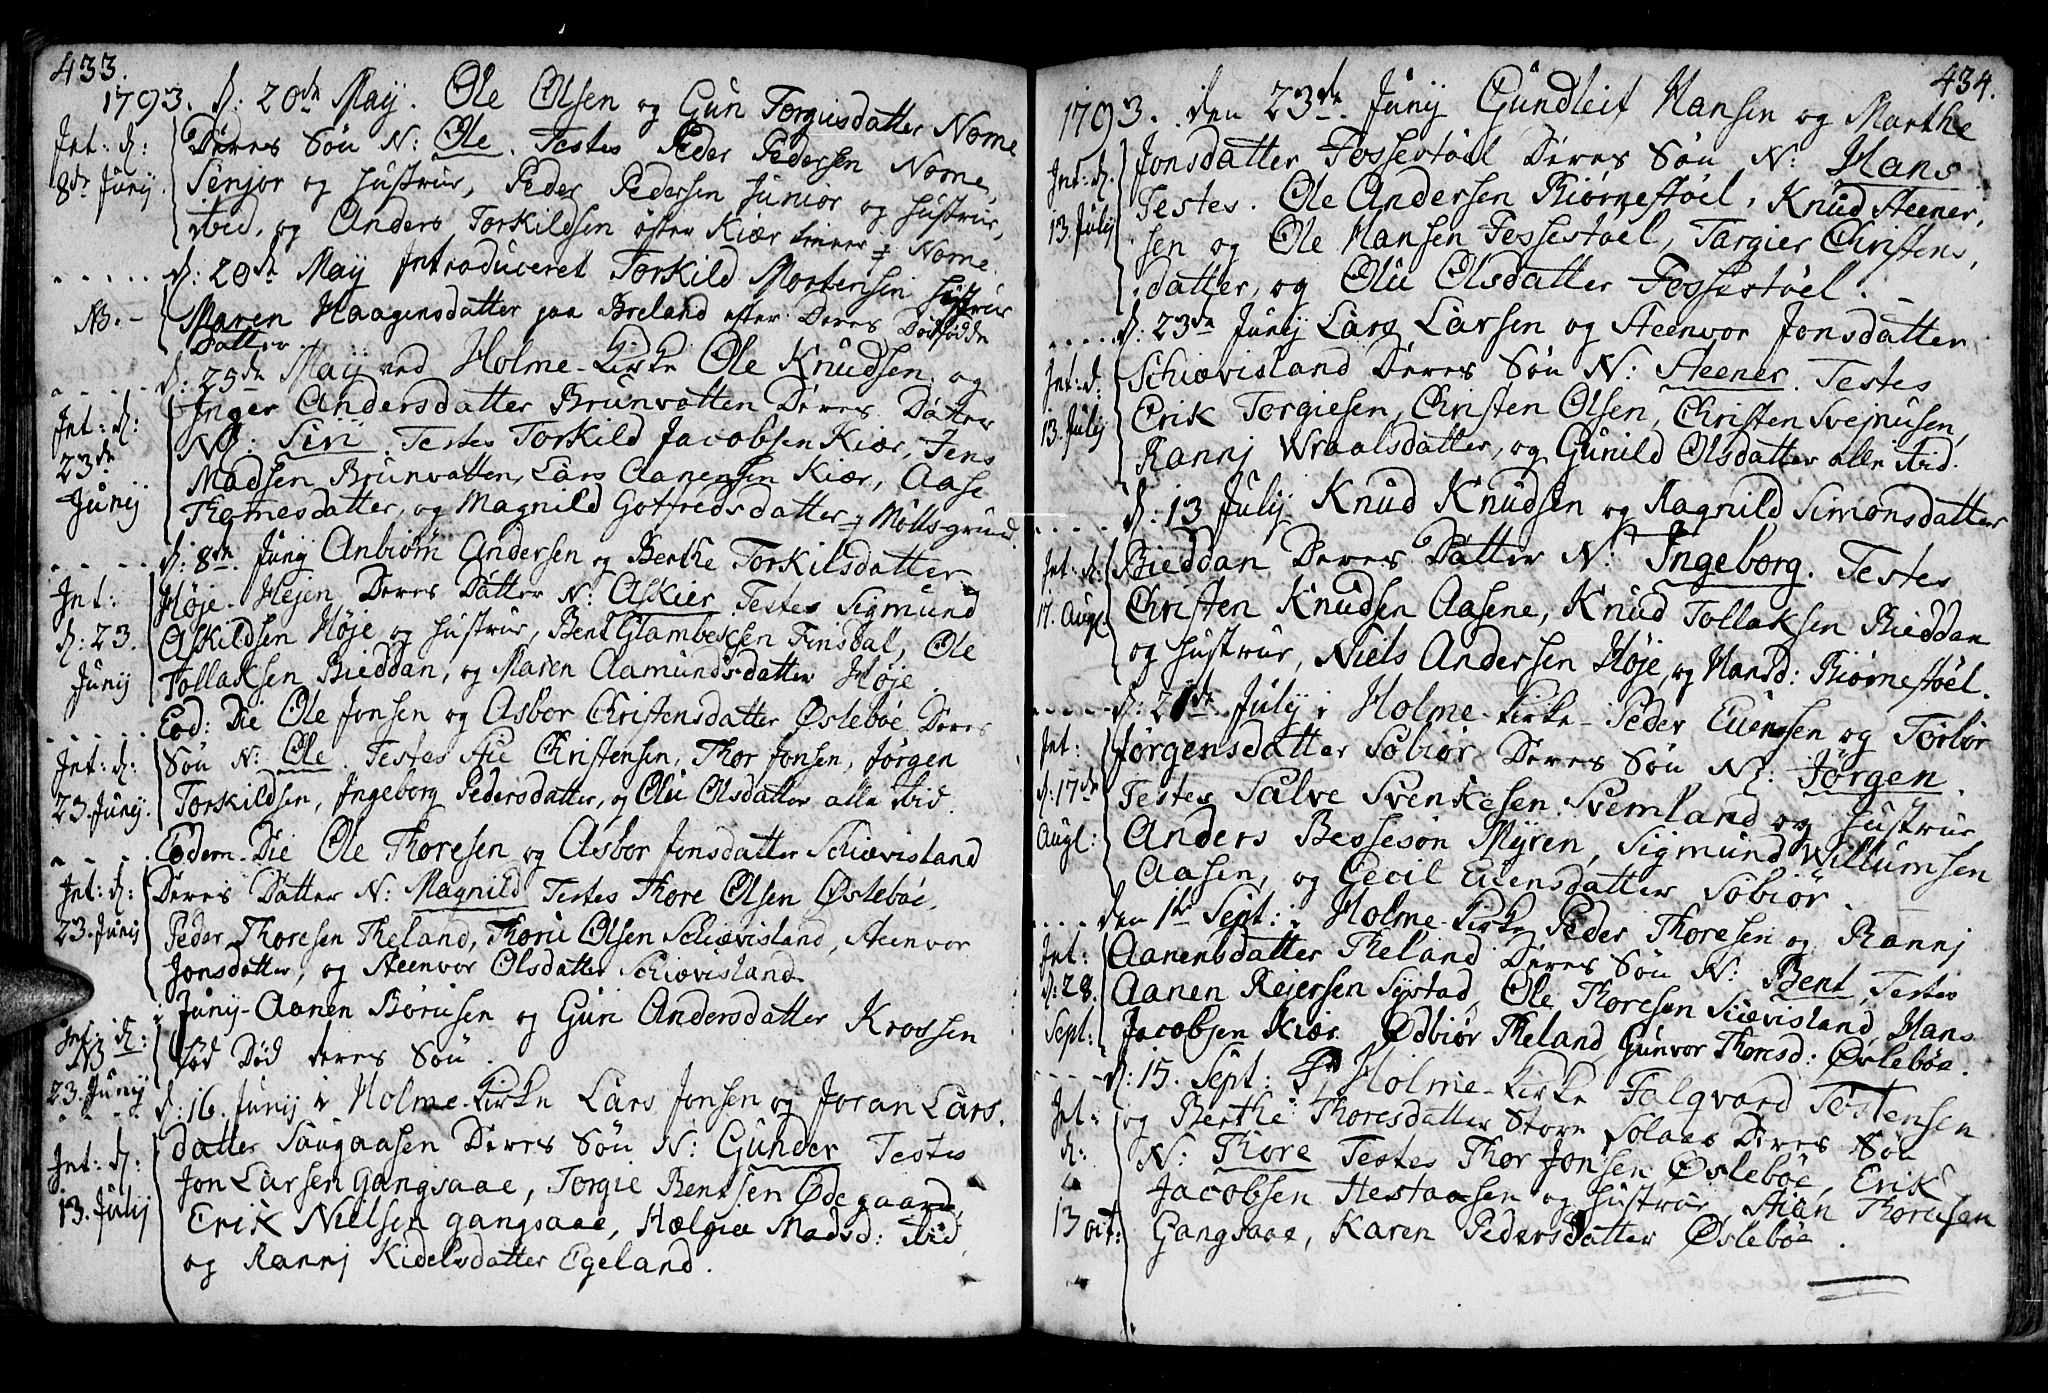 433.
1793. d: 20de Maÿ. Ole Olsen og Gun Torgiusdatter Nome
Int: d: Deres Søn N: Ole. Testes Peder Pedersen Nome,
8de Junÿ. Senjor og Hustrue, Peder Pedersen Junior og Hustrue,
ibid, og Anders Torkildsen øster Kiær tienner Nome.
d: 20de Maÿ Introduceret Torkild Mortensen Hustrue
NB. - Maren Haagensdatter paa Breland efter Deres Dødfødde
Datter.
d: 25de Maÿ ved Holme-Kirke Ole Knudsen og
Int: d: Inger Andersdatter Brunvatten Deres Datter
N: Siri. Testes Torkild Jacobsen Kiær, Jens
23de Madsen Brunvatten, Lars Aanensen Kiær, Aase
Junij Thomesdatter, og Magnild Gotfredsdatter Møllegrund.
d: 8de Junÿ Anbiøm Andersen og Berthe Torkilsdatter
Int: Høje-Hejen Deres Datter N: Askier Testes Sigmund
d: 23. Askildsen Høje og Hustrue, Bent Glambeksen Finsdal, Ole
Junij Tollaksen Bieddan, og Maren Aamundsdatter Høje.
Eod: Die Ole Jonsen og Asbor Christensdatter Øslebøe Deres
Int: d: Søn N: Ole. Testes Christensen, Thor Jonsen, Jørgen
23. Junij. Torkildsen, Ingeborg Pedersdatter, og Olü Olsdatter alle ibid.
Eodem-Die Ole Thoresen og Asbor Jonsdatter Schiævisland
Int: d: Deres Datter N: Magnild Testes Thore Olsen Øslebøe,
23. Junij Peder Thoresen Theland, Thorü Olsen Schiævisland, Steenvor
Jonsdatter, og Steenvor Olsdatter Schiævisland.
i Junij-Aanen Børüsen og Gün Andersdatter Krossen
Int: d: NB lod Død deres Søn.
23. Junij
d: 16. Junij i Holme-Kirke Lars Jonsen og Joran Lars,
Int: d: datter Saugaasen Deres Søn N: Gunder Testes
Jon Larsen Gangsaae, Torgie Bentsen Ødegaard,
13. Julij Erik Nielsen Gangsaae, Hælgie Madsd: ibid,
og Rannj Kidelsdatter Egeland.
434.
1793. den 23de Junÿ Gundleif Hansen og Marthe
Int: d. Jonsdatter Fossestøel Deres Søn N: Hans.
Testes. Ole Andersen Biørnestøel, Knud Steener,
13. Julij sen og Ole Hansen Fossestøel, Targier Christens,
datter, og Olü Olsdatter Fossestøel.
d: 23de Junij Lars Larsen og Steenvor Jonsdatter
Int: d: Schiævisland Deres Søn N: Steener. Testes
13. Julij Erik Torgiesen, Christen Olsen, Christen Svejnusen,
Rannj Wraalsdatter, og Gunild Olsdatter alle ibid.
d: 13 Julij Knud Knudsen og Ragnild Simonsdatter
Int: d: Bieddan Deres Datter N: Ingeborg. Testes
17. Augl. Christen Knudsen Aasene, Knud Tollaksen Bieddan
og Hustrue, Niels Andersen Høje, og Hansd: Biørnestøel.
d: 21de Julij i Holme-Kirke Peder Evensen og Torbor
Int: Jørgensdatter Søbiør Deres Søn N: Jørgen.
d: 17de Testes Salve Svenkesen Svemland og Hustrue
Augl: Anders Bessesøn Myren, Sigmund Willumsen
Aasen, og Cecil Evensdatter Søbiør.
den 1te Sept: i Holme-Kirke Peder Thoresen og Rannj
Int: Aanensdatter Theland Deres Søn N: Bent, Testes
d: 28. Aanen Rejersen Systad, Ole Thoresen Sciævisland, Hans
Sept: Jacobsen Kiær. Ødbiør Theland, Gunvor Thoresd: Øslebøe.
d: 15. Sept: i Holme-Kirke Falqvard Tostensen
Int: og Berthe Thoresdatter Store Solaas Deres Søn
d: N: Thore Testes Thor Jonsen Øslebøe, Erik
Jacobsen Hestaasen og Hustrue, Stian Thorüsen
13 oct: Gangsaae, Karen Pedersdatter Øslebøe.